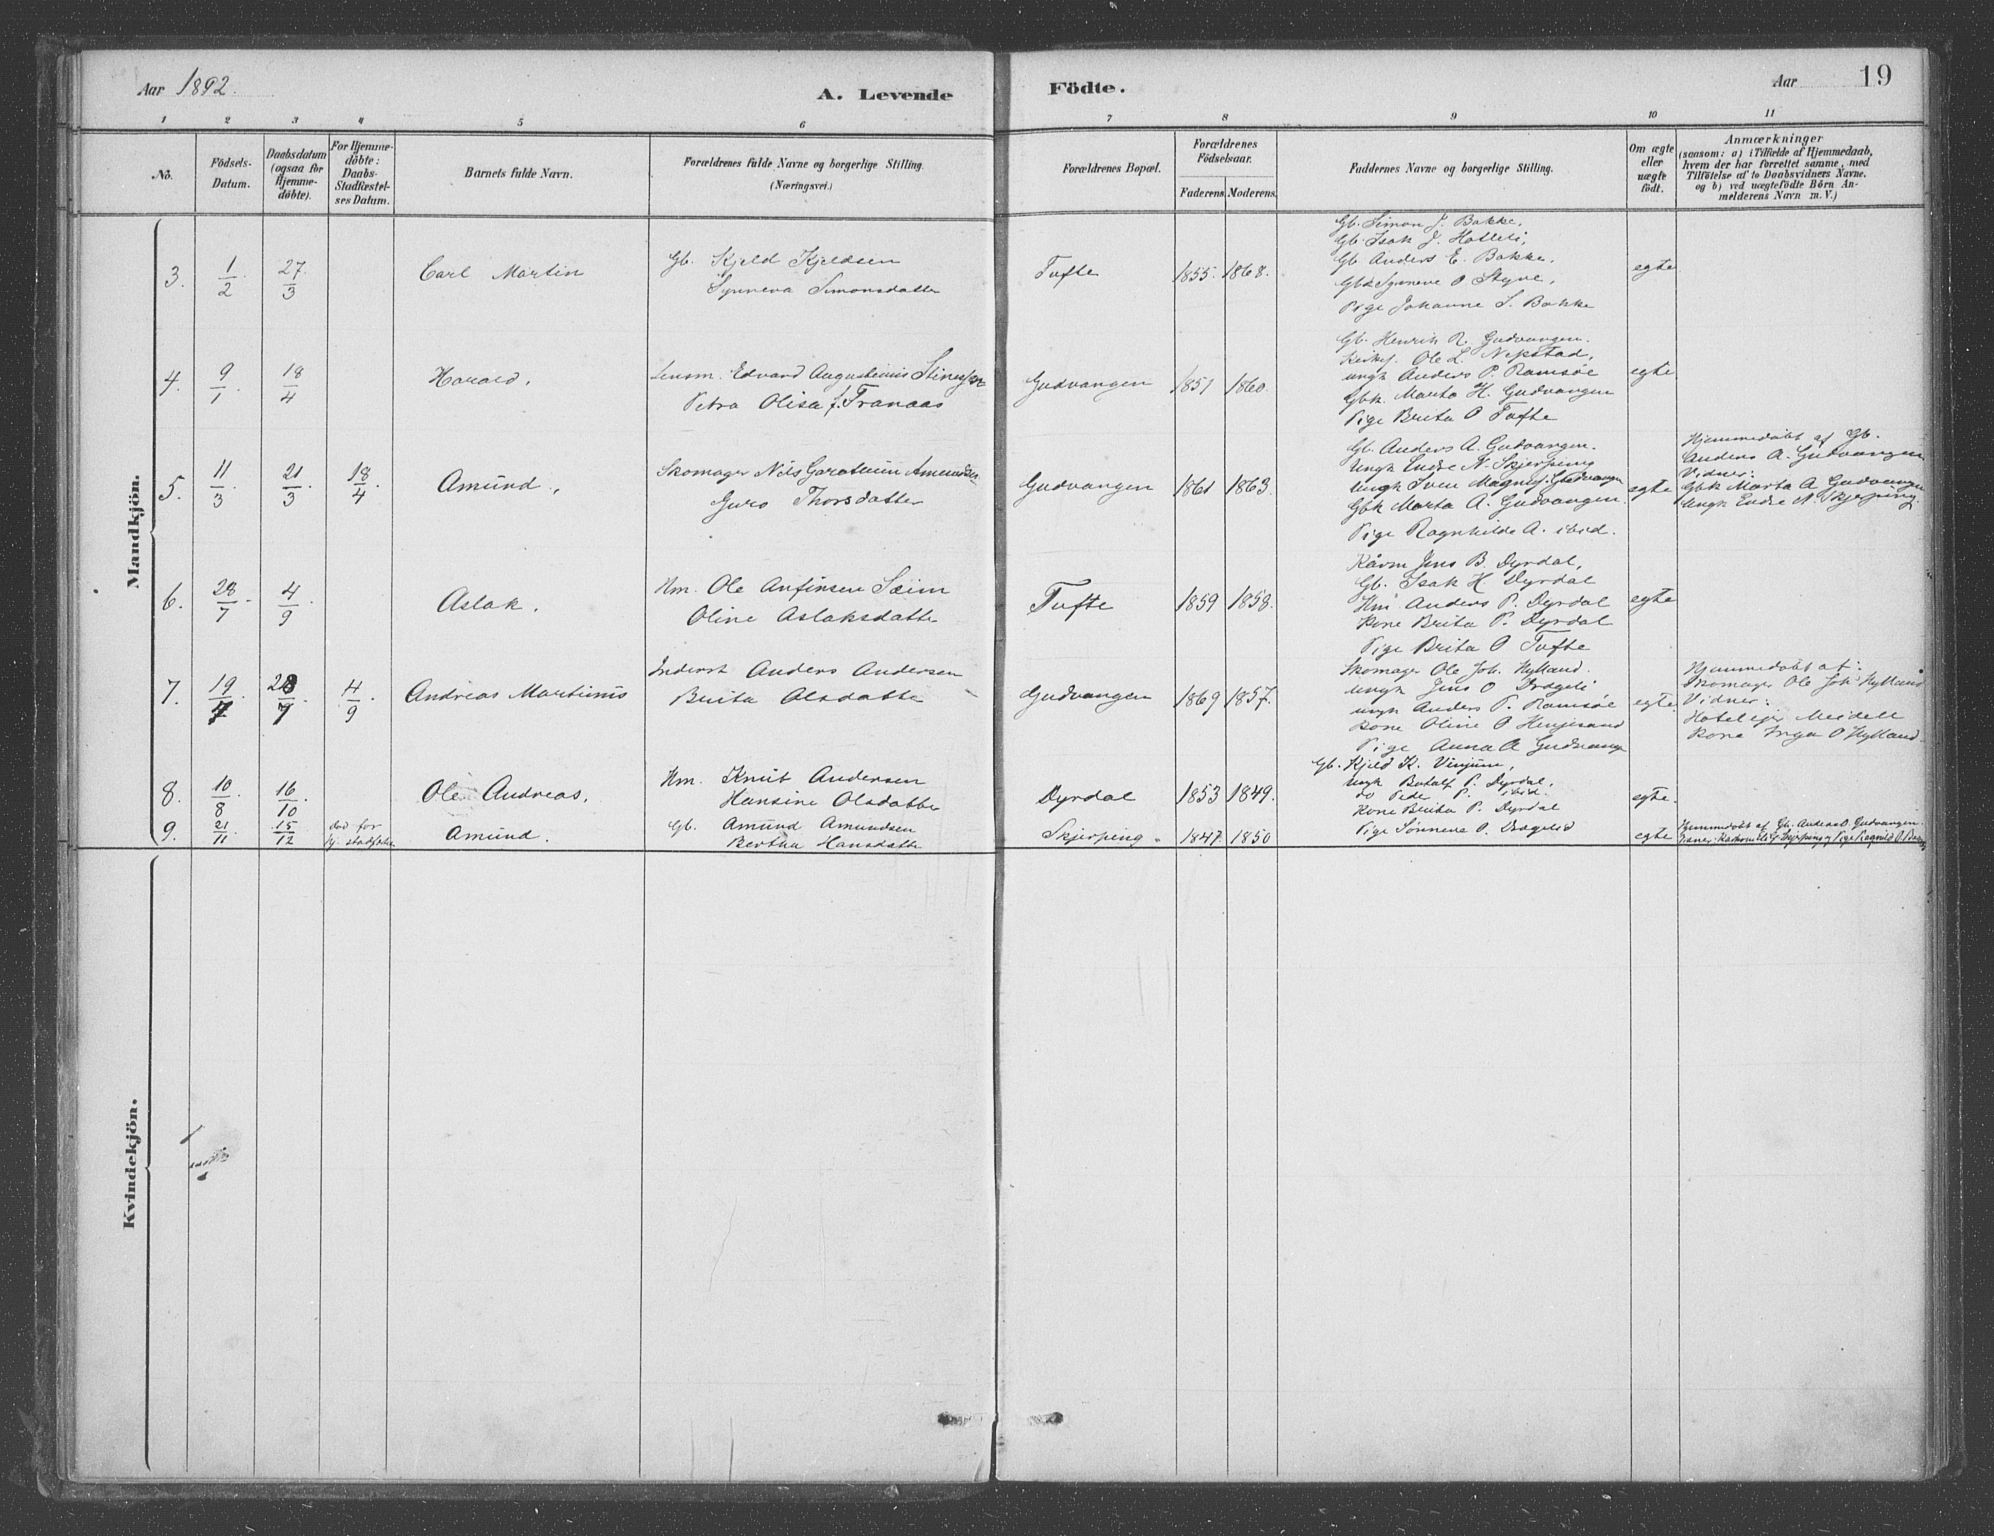 Aar 1892.
A. Levende
Födte.
Aar
19
1 2 3 4 5 6 7 8 9 10 11
No.
Födsels-
Datum.
Daabsdatum
(ogsaa for
Hjemme-
döbte).
For Hjemme-
döbte:
Daabs-
Stadfæstel-
ses Datum.
Barnets fulde Navn.
Forældrenes fulde Navne og borgerlige Stilling.
(Næringsvei.)
Forældrenes Bopæl.
Forældrenes
Födselsaar.
Faderens. Moderens.
Faddernes Navne og borgerlige Stilling.
Om ægte
eller
uægte
födt.
Anmærkninger
(saasom: a) i Tilfælde af Hjemmedaab,
hvem der har forrettet samme, med
Tilföielse af to Daabsvidners Navne.
og b) ved uægtefödte Börn An-
melderens Navn m. V.)
Mandkjön.
3. 1/2. 27/3 Carl Martin
Gb. Kjeld Kjeldsen
Synneva Simonsdatter
Tufte 1855. 1868.
Gb. Simon J. Bakke,
Gb. Isak J. Hatleli,
Gb. Anders E. Bakke,
Gbk Synneve O Styve,
Pige Johanne S. Bakke
egte
4. 9/1. 18/4 Harald.
Lensm. Edvard Augustinius
Petra Olisa f. Tranaas
Gudvangen 1851 1860.
Gb. Henrik R. Gudvangen.
Ole L. Nekstad,
ungk Anders P. Ramsøe
Gbk. Marta H. Gudvangen
Pige Brita O Tufte
egte
5. 11/3. 21/3. 18/4. Amund.
Skomager Nils Amundsen
Guro Thorsdatter
Gudvangen 1861 1863.
Gb. Anders A. Gudvangen.
Ungk Endre N. Skjerping
Ungk Sven Gudvangen
Gbk Marta A. Gudvangen
Pige Ragnhilde A. ibid.
egte
Hjemmedøbt af Gb.
Anders A. Gudvangen
Vidner:
Gbk Marta A Gudvangen
Ungk Endre N. Skjerping
6. 28/7. 4/9. Aslak.
Hm. Ole Anfinsen Sæim
Oline Aslaksdatter
Tufte 1859 1858.
Jens B. Dyrdal,
Gb. Isak H. Dyrdal
Hm. Anders P. Dyrdal
Kone Brita P. Dyrdal
Pige Brita O Tufte
egte
7. 19/7 28/7 4/9. Andreas Martinus
Inderst Anders Andersen
Brita Olsdatter
Gudvangen 1869 1857.
Skomager Ole Joh. Hylland.
Ungk Jens O Drægeli
ungk Anders P. Ramsøe
Kone Oline O
Pige Anna A Gudvangen
egte
Hjemmedøbt af:
Skomager Ole Joh Hylland
Vidner:
Hotelejer Meidell
Kone Inga O Hylland.
8. 10/8 16/10. Ole Andreas.
Hm. Knut Andersen
Hansine Olsdatter
Dyrdal 1853 1849.
Gb. Kjeld K. Vinjum,
Ungk Botolf P. Dyrdal,
do Peder P. ibid.
Kone Brita P. Dyrdal
Pige Sønneve O. Drægelid
egte.
9. 21/11. 15/12 død før
Amund.
Gb. Amund Amundsen
Bertha Hansdatter
Skjerping 1847. 1850
egte
Hjemmedøbt af Gb. Anders O. Gudvangen.
Kvindekjön.